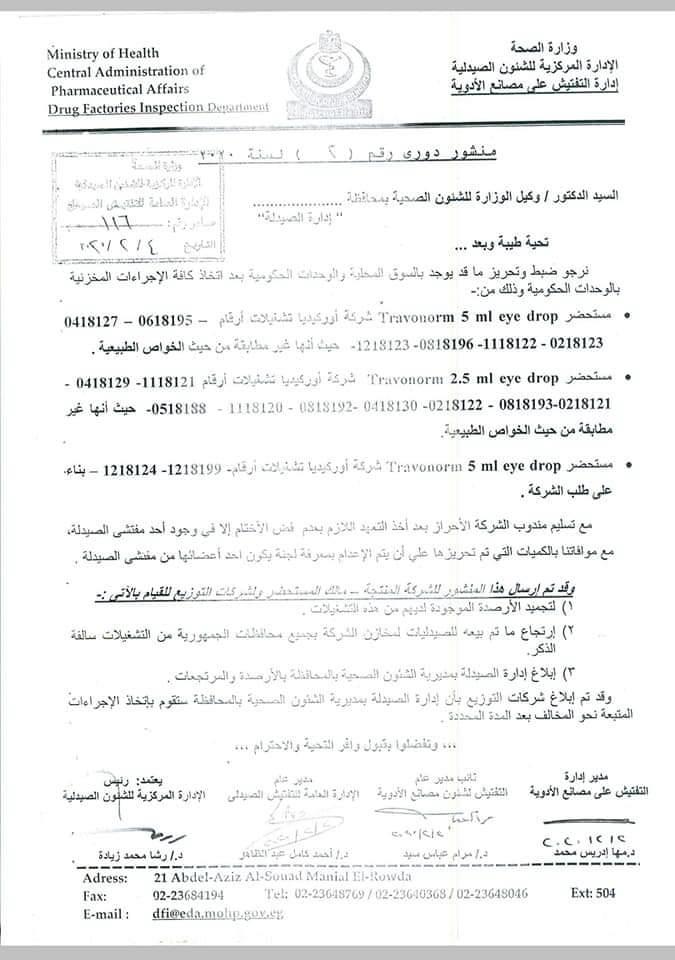 Ministry of Health
Central Administration of
Pharmaceutical Affairs
Drug Factories Inspection Department
وزارة الصحة
الإدارة المركزية للشئون الصيدلية
إدارة التفتيش على مصانع الأدوية
منشور دورى رقم ( ٢ ) لسنة ٢٠٢٠
وزارة الصحة
الإدارة المركزية للشئون الصيدلية
الإدارة العامة للتفتيش الصيدلى
صادر رقم: ١١٦
التاريخ ٤ / ٢ / ٢٠٢٠
السيد الدكتور / وكيل الوزارة للشئون الصحية بمحافظة ....................
" إدارة الصيدلة"
تحية طيبة وبعد ...
نرجو ضبط وتحريز ما قد يوجد بالسوق المحلية والوحدات الحكومية بعد اتخاذ كافة الإجراءات المخزنية
بالوحدات الحكومية وذلك من:-
• مستحضر Travonorm 5 ml eye drop شركة أوركيديا تشغيلات أرقام – 0618195 – 0418127
0218123 - 1118122 - 0818196 -1218123- حيث أنها غير مطابقة من حيث الخواص الطبيعية .
• مستحضر Travonorm 2.5 ml eye drop شركة أوركيديا تشغيلات أرقام 1118121 - 0418129 -
0218121-0818193 - 0218122- 0418130 - 0818192- 1118120 - 0518188- حيث أنها غير
مطابقة من حيث الخواص الطبيعية.
• مستحضر Travonorm 5 ml eye drop شركة أوركيديا تشغيلات أرقام- 1218199- 1218124 – بناء
على طلب الشركة .
مع تسليم مندوب الشركة الأحراز بعد أخذ التعهد اللازم بعدم فض الأختام إلا في وجود أحد مفتشى الصيدلة،
مع موافاتنا بالكميات التي تم تحريزها علي أن يتم الإعدام بمعرفة لجنة يكون احد أعضائها من مفتشى الصيدلة .
وقد تم إرسال هذا المنشور للشركة المنتجة – مالك المستحضر ولشركات التوزيع للقيام بالآتي :-
١) لتجميد الأرصدة الموجودة لديهم من هذه التشغيلات .
٢) إرتجاع ما تم بيعه للصيدليات لمخازن الشركة بجميع محافظات الجمهورية من التشغيلات سالفة
الذكر.
٣) إبلاغ إدارة الصيدلة بمديرية الشئون الصحية بالمحافظة بالأرصدة والمرتجعات .
وقد تم إبلاغ شركات التوزيع بأن إدارة الصيدلة بمديرية الشئون الصحية بالمحافظة ستقوم بإتخاذ الإجراءات
المتبعة نحو المخالف بعد المدة المحددة .
... وتفضلوا بقبول وافر التحية والاحترام ،،،
مدير إدارة
التفتيش على مصانع الأدوية
نائب مدير عام
التفتيش لشئون مصانع الأدوية
مدير عام
الإدارة العامة للتفتيش الصيدلى
يعتمد: رئيس
الإدارة المركزية للشئون الصيدلية
د.مها إدريس محمد
د./ مرام عباس سيد
د./ أحمد كامل عبد الظاهر
د./ رشا محمد زيادة
Adress: 21 Abdel-Aziz Al-Souad Manial El-Rowda
Fax: 02-23684194 Tel: 02-23648769 / 02-23640368 / 02-23648046 Ext: 504
E-mail : dfi@eda.mohp.gov.eg